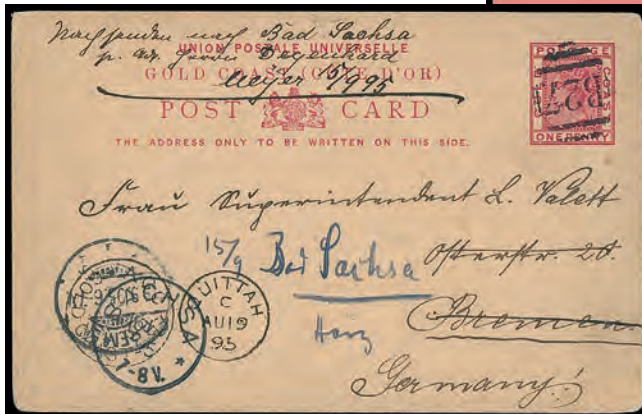 Nachsenden nach Bad Sachsa
p. adr. Herrn Degenhard
Meyer 15/9 95
UNION POSTALE UNIVERSELLE
GOLD COAST (CÔTE D'OR)
POST CARD
THE ADDRESS ONLY TO BE WRITTEN ON THIS SIDE.
POSTAGE
ONE PENNY
Frau Superintendent L. Valett
Osterstr. 20.
15/9 Bad Sachsa
Harz
Bremen
Germany!
QUITTAH
C
AU 19
95
SACHSA
BREM
7-8 V.